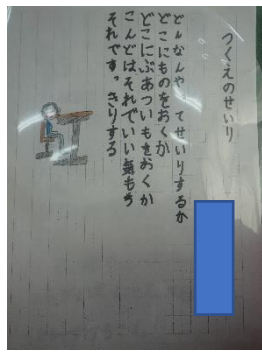 つくえのせいり
どんなんやってせいりするか
どこにものをおくか
どこにぶあついもをおくか
こんどはそれでいい気もち
それです。きりする